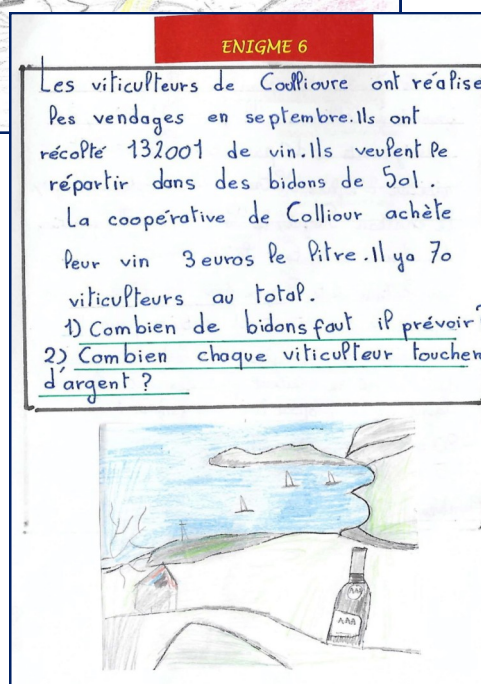 ENIGME 6
Les viticulteurs de Collioure ont réalise
les vendages en septembre.Ils ont
récolté 13200l de vin.Ils veulent le
répartir dans des bidons de 50l.
La coopérative de Colliour achète
leur vin 3 euros le litre.Il ya 70
viticulteurs au total.
1) Combien de bidons faut il prévoir?
2) Combien chaque viticulteur toucher
d'argent ?
AAA